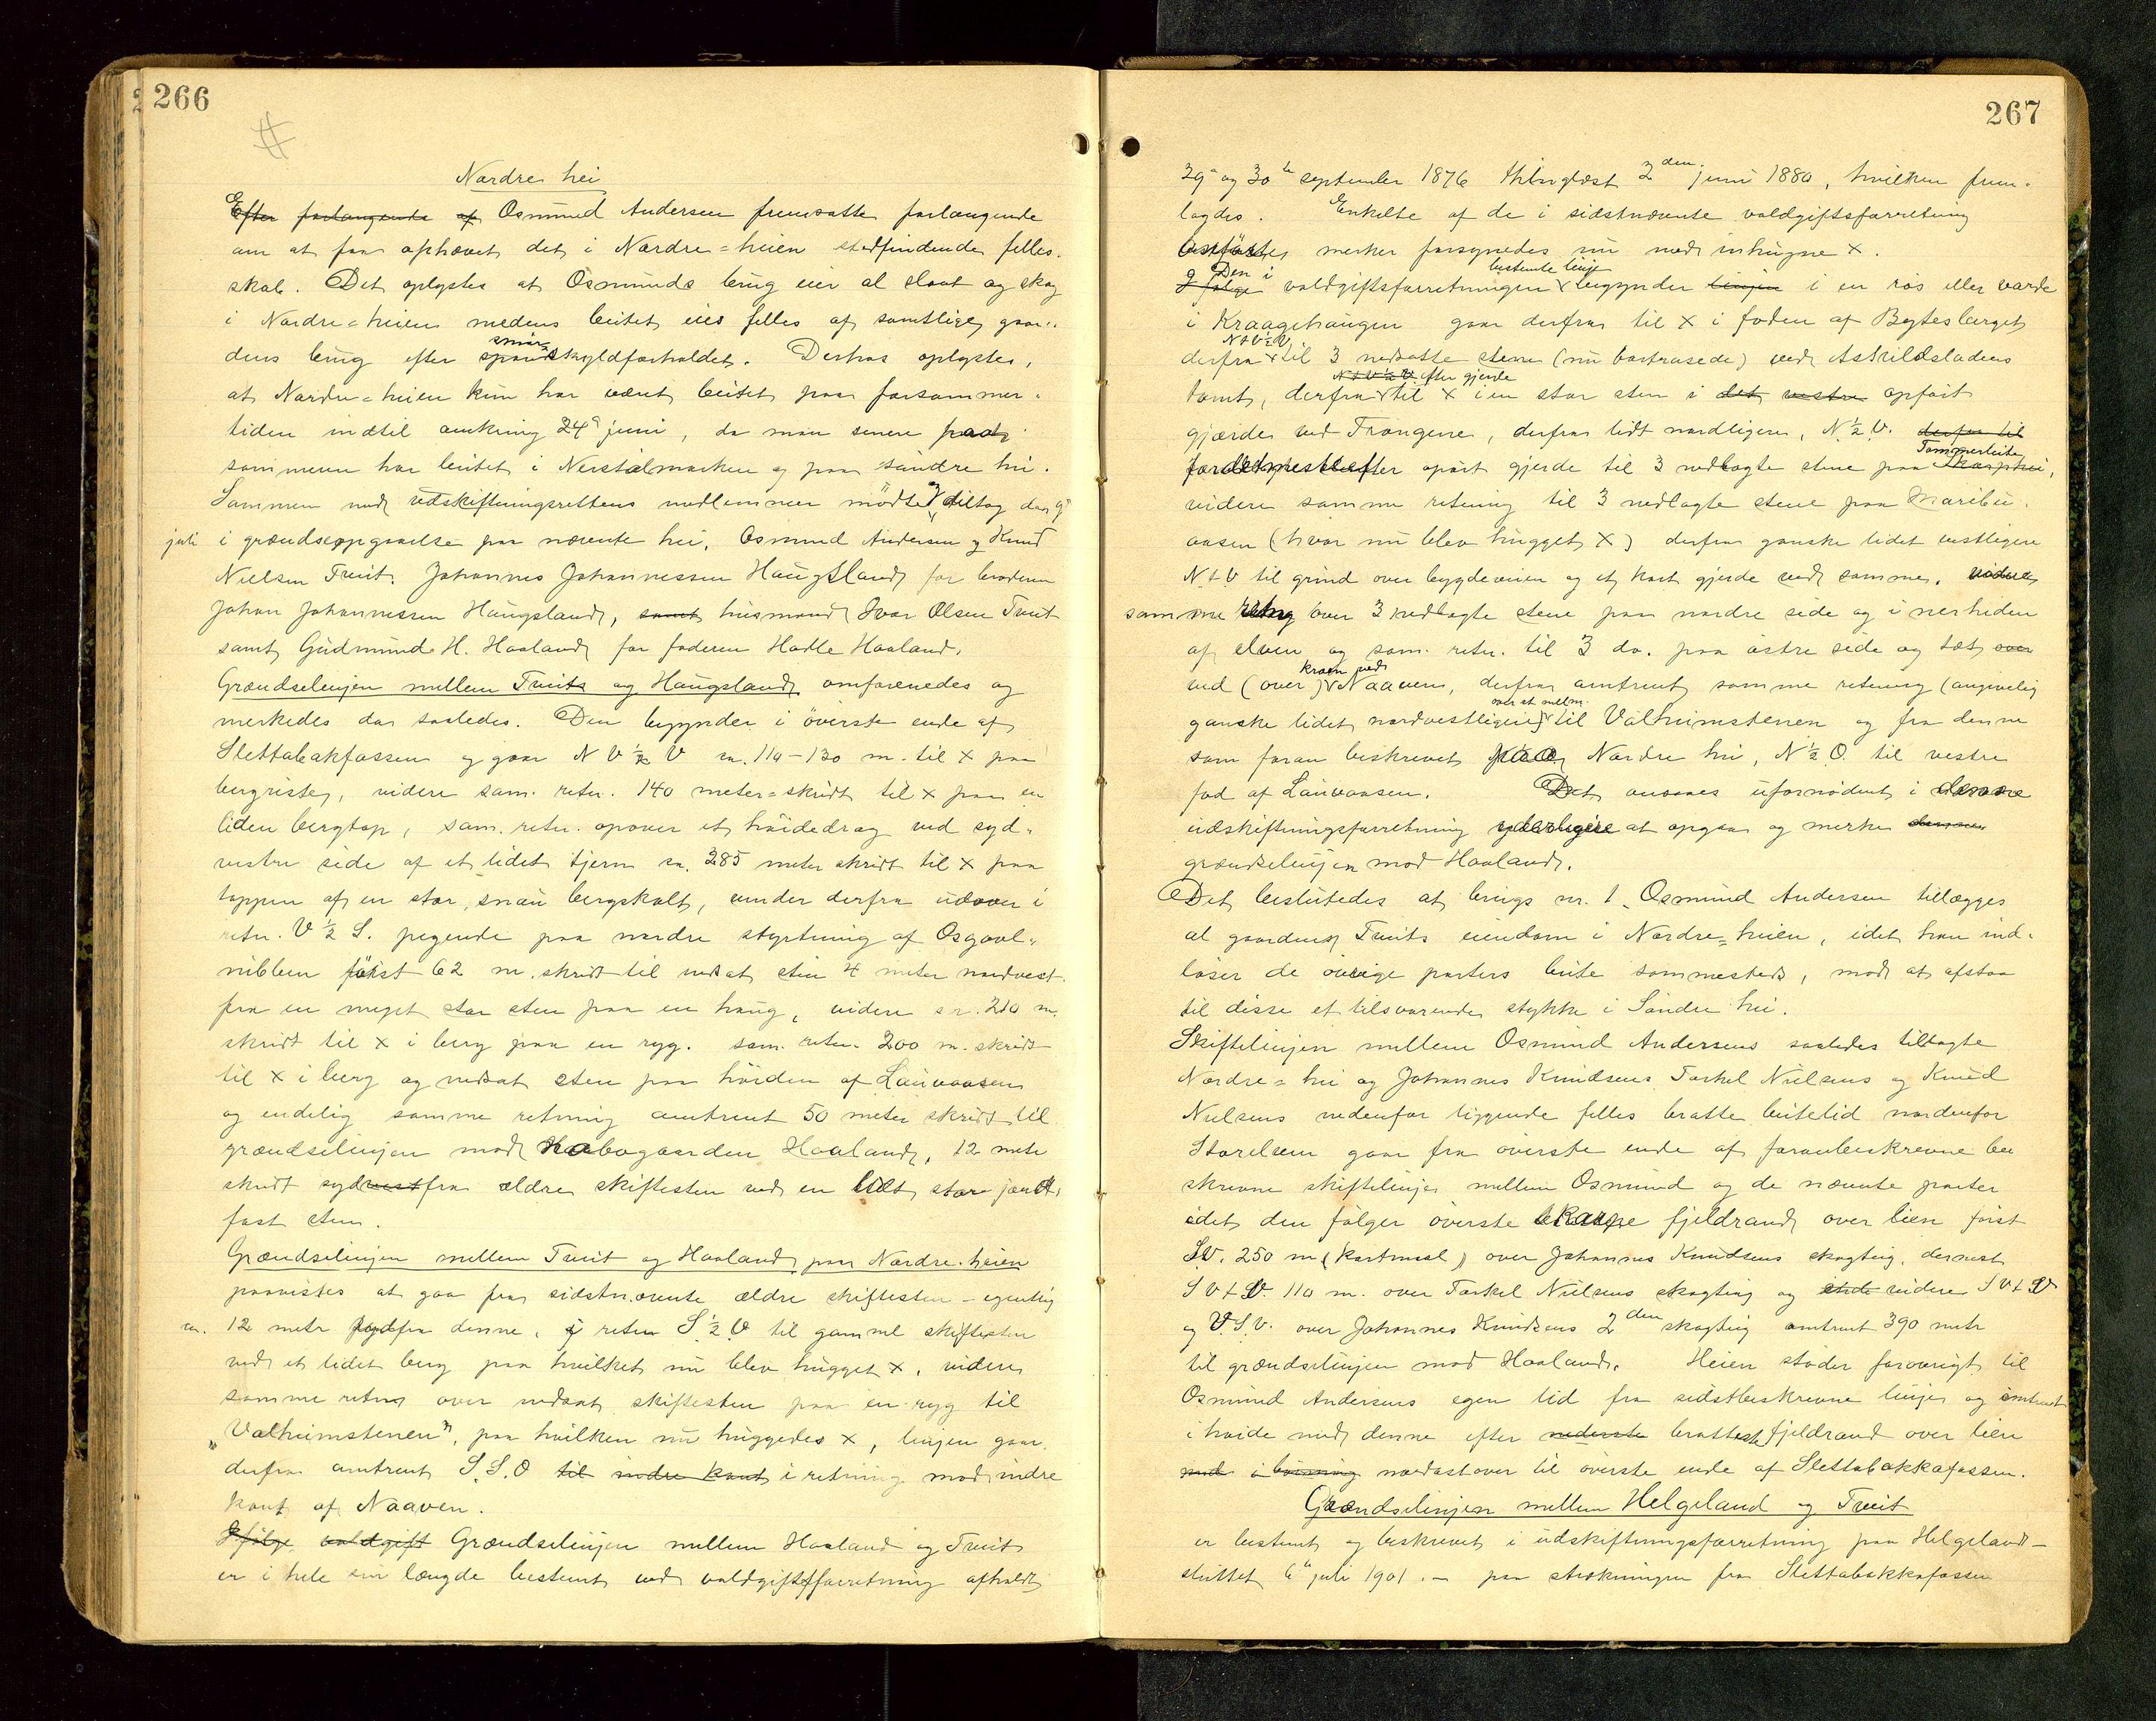 266
Nordre hei
Efter forlangende af Osmund Andersen fremsatte forlangende
om at faa ophævet det i Nordre=heien stedfindende felles-
skab. Det oplystes at Osmunds brug eier al slaat og skog
i Nordre=heien medens beitet eies felles af samtlige gaar-
dens brug efter smør skyldforholdet. Derhos oplystes,
at Nordre=heien kun har været beitet paa forsommer-
tiden indtil omkring 24de juni, da man senere paa
sommeren har beitet i Nerstølmarken og paa søndre hei.
Sammen med udskiftningsrettens medlemmer mødte & deltog den 9de
juli i grændseopgaaelse paa nævnte hei, Osmund Andersen og Knud
Nielsen Tveit, Johannes Johannessen Haugsland for broderen
Johan Johannessen Haugsland, samt husmand Ivar Olsen Tveit
samt Gudmund H. Haaland for faderen Hadle Haaland.
Grændselinjen mellem Tveit og Haugsland omforenedes og
merkedes da saaledes. Den begynder i øverste ende af
Slettabakfossen og gaar N V ½ V ca. 110-130 m. til x paa
bergriste, videre sam. retn. 140 meter=skridt til x paa en
liden bergtop, sam. retn. opover et høidedrag ved syd-
vestre side af et lidet tjern ca. 285 meter skridt til x paa
toppen af en stor, snau bergskolt, under derfra udover i
retn. V ½ S. pegende paa nordre styrtning af Osgaal-
nibben først 62 m. skridt til nedsat sten 4 meter nordvest
fra en meget stor sten paa en haug, videre ca. 210 m.
skridt til x i berg paa en ryg. sam. retn. 200 m. skridt
til x i berg og nedsat sten paa høiden af Lauvaasen
og endelig samme retning omtrent 50 meter skridt til
grændselinjen mod Nabogaarden Haaland, 12 meter
skridt sydvest fra ældre skiftesten ved en lidt større jord-
fast sten.
Grændselinjen mellem Tveit og Haaland paa Nordre heien
paavistes at gaa fra sidstnævnte ældre skiftesten - egentlig
ca. 12 meter syd fra denne, i retn S ½ V til gammel skiftesten
ved et lidet berg paa hvilket nu blev hugget x, videre
samme retning over nedsat skiftesten paa en ryg til
"Valheimstenen", paa hvilken nu huggedes x, linjen gaar
derfra omtrent S.S.O til indre kant i retning mod indre
kant af Naaven.
Ifølge voldgift Grændselinjen mellem Haaland og Tveit
er i hele sin længde bestemt ved voldgiftsforretning afholdt
267
29de og 30te september 1876 thinglæst 2den juni 1880, hvilken frem-
lagdes. Enkelte af de i sidstnævnte voldgiftsforretning
anførte merker forsynedes nu med inhugne x.
Ifølge Den i voldgiftsforretningen bestemte linje begynder linjen i en røs eller varde
i Kraagehaugen gaar derfra til x i foden af Bøtesberget
derfra N t V ½ V til 3 nedsatte stene (nu bortrasede) ved Askildsladens
tomt, derfra N t V ½ V efter gjerde til x i en stor sten i det vestre opført
gjærde ved Trangene, derfra lidt nordligere, N ½ V. derfor til
efter opført gjerde til 3 nedlagte stene paa Tømmerleite,
videre samme retning til 3 nedlagte stene paa Maribu-
aasen (hvor nu blev hugget x) derfra ganske lidet vestligere
N t V til grind over bygdeveien og et kort gjerde ved samme. videre
samme retning over 3 nedlagte stene paa nordre side og i nerheden
af elven og sam. retn. til 3 do. paa østre side og tæt over
ved (over) kraen ved Naaven, derfra omtrent samme retning (angivelig
ganske lidet nordvestligere) til Valheimstenen og fra denne
som foran beskrevet paa Nordre hei, N ½ O. til vestre
fod af Lauvaasen. Det ansees ufornødent i denne
udskiftningsforretning yderligere at opgaa og merke denne
grændselinjen mod Haaland.
Det besluttedes at brugs nr. 1. Osmund Andersen tillægges
al gaarden Tveits eiendom i Nordre=heien, idet han ind-
løser de øvrige parters beite sammesteds, mod at afstaa
til disse et tilsvarende stykke i Søndre hei.
Skiftelinjen mellem Osmund Andersens saaledes tillagte
Nordre=hei og Johannes Knudsens Torkel Nielsens og Knud
Nielsens nedenfor liggende felles bratte beitelid nordenfor
Storelven gaar fra øverste ende af foranbeskrevne be
skrevne skiftelinje mellem Osmund og de nævnte parter
idet den følger øverste skarpe fjeldrand over lien først
S.V. 250 m (kartmaal) over Johannes Knudsens skogteig, dernæst
S V t V. 110 m. over Torkel Nielsens skogteig og ende videre S V t V
og V.S.V. over Johannes Knudsens 2den skogteig omtrent 390 meter
til grændselinjen mod Haaland. Heien støder forøvrigt til
Osmund Andersens egen lid fra sidstbeskrevne linje og omtrent
i høide med denne efter nederste bratteste fjeldrand over lien
ned i nordostover til øverste ende af Slettabakkafossen.
Grændselinjen mellem Helgeland og Tveit
er bestemt og beskrevet i udskiftningsforretning paa Helgeland -
sluttet 6te juli 1901. - paa strækningen fra Slettabakkafossen